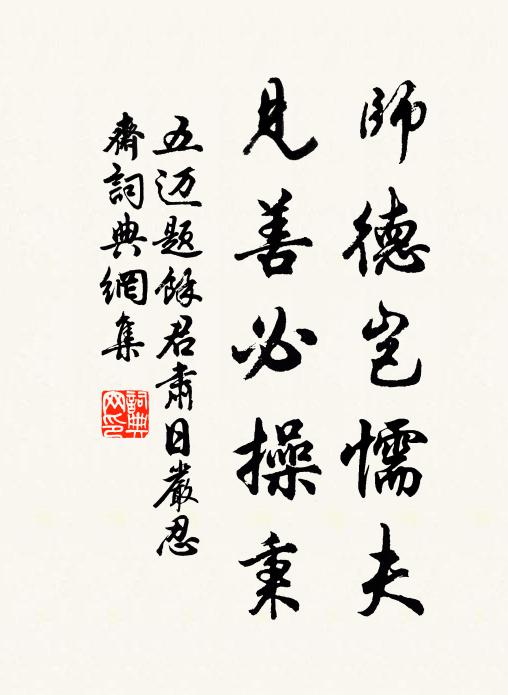 師德岂懦夫
見善必操秉
五迈题餘君肃日嚴忍
齋詞典網集
詞典网印